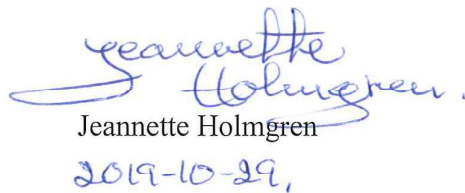 Jeannette
Holmgren.
Jeannette Holmgren
2019-10-29,